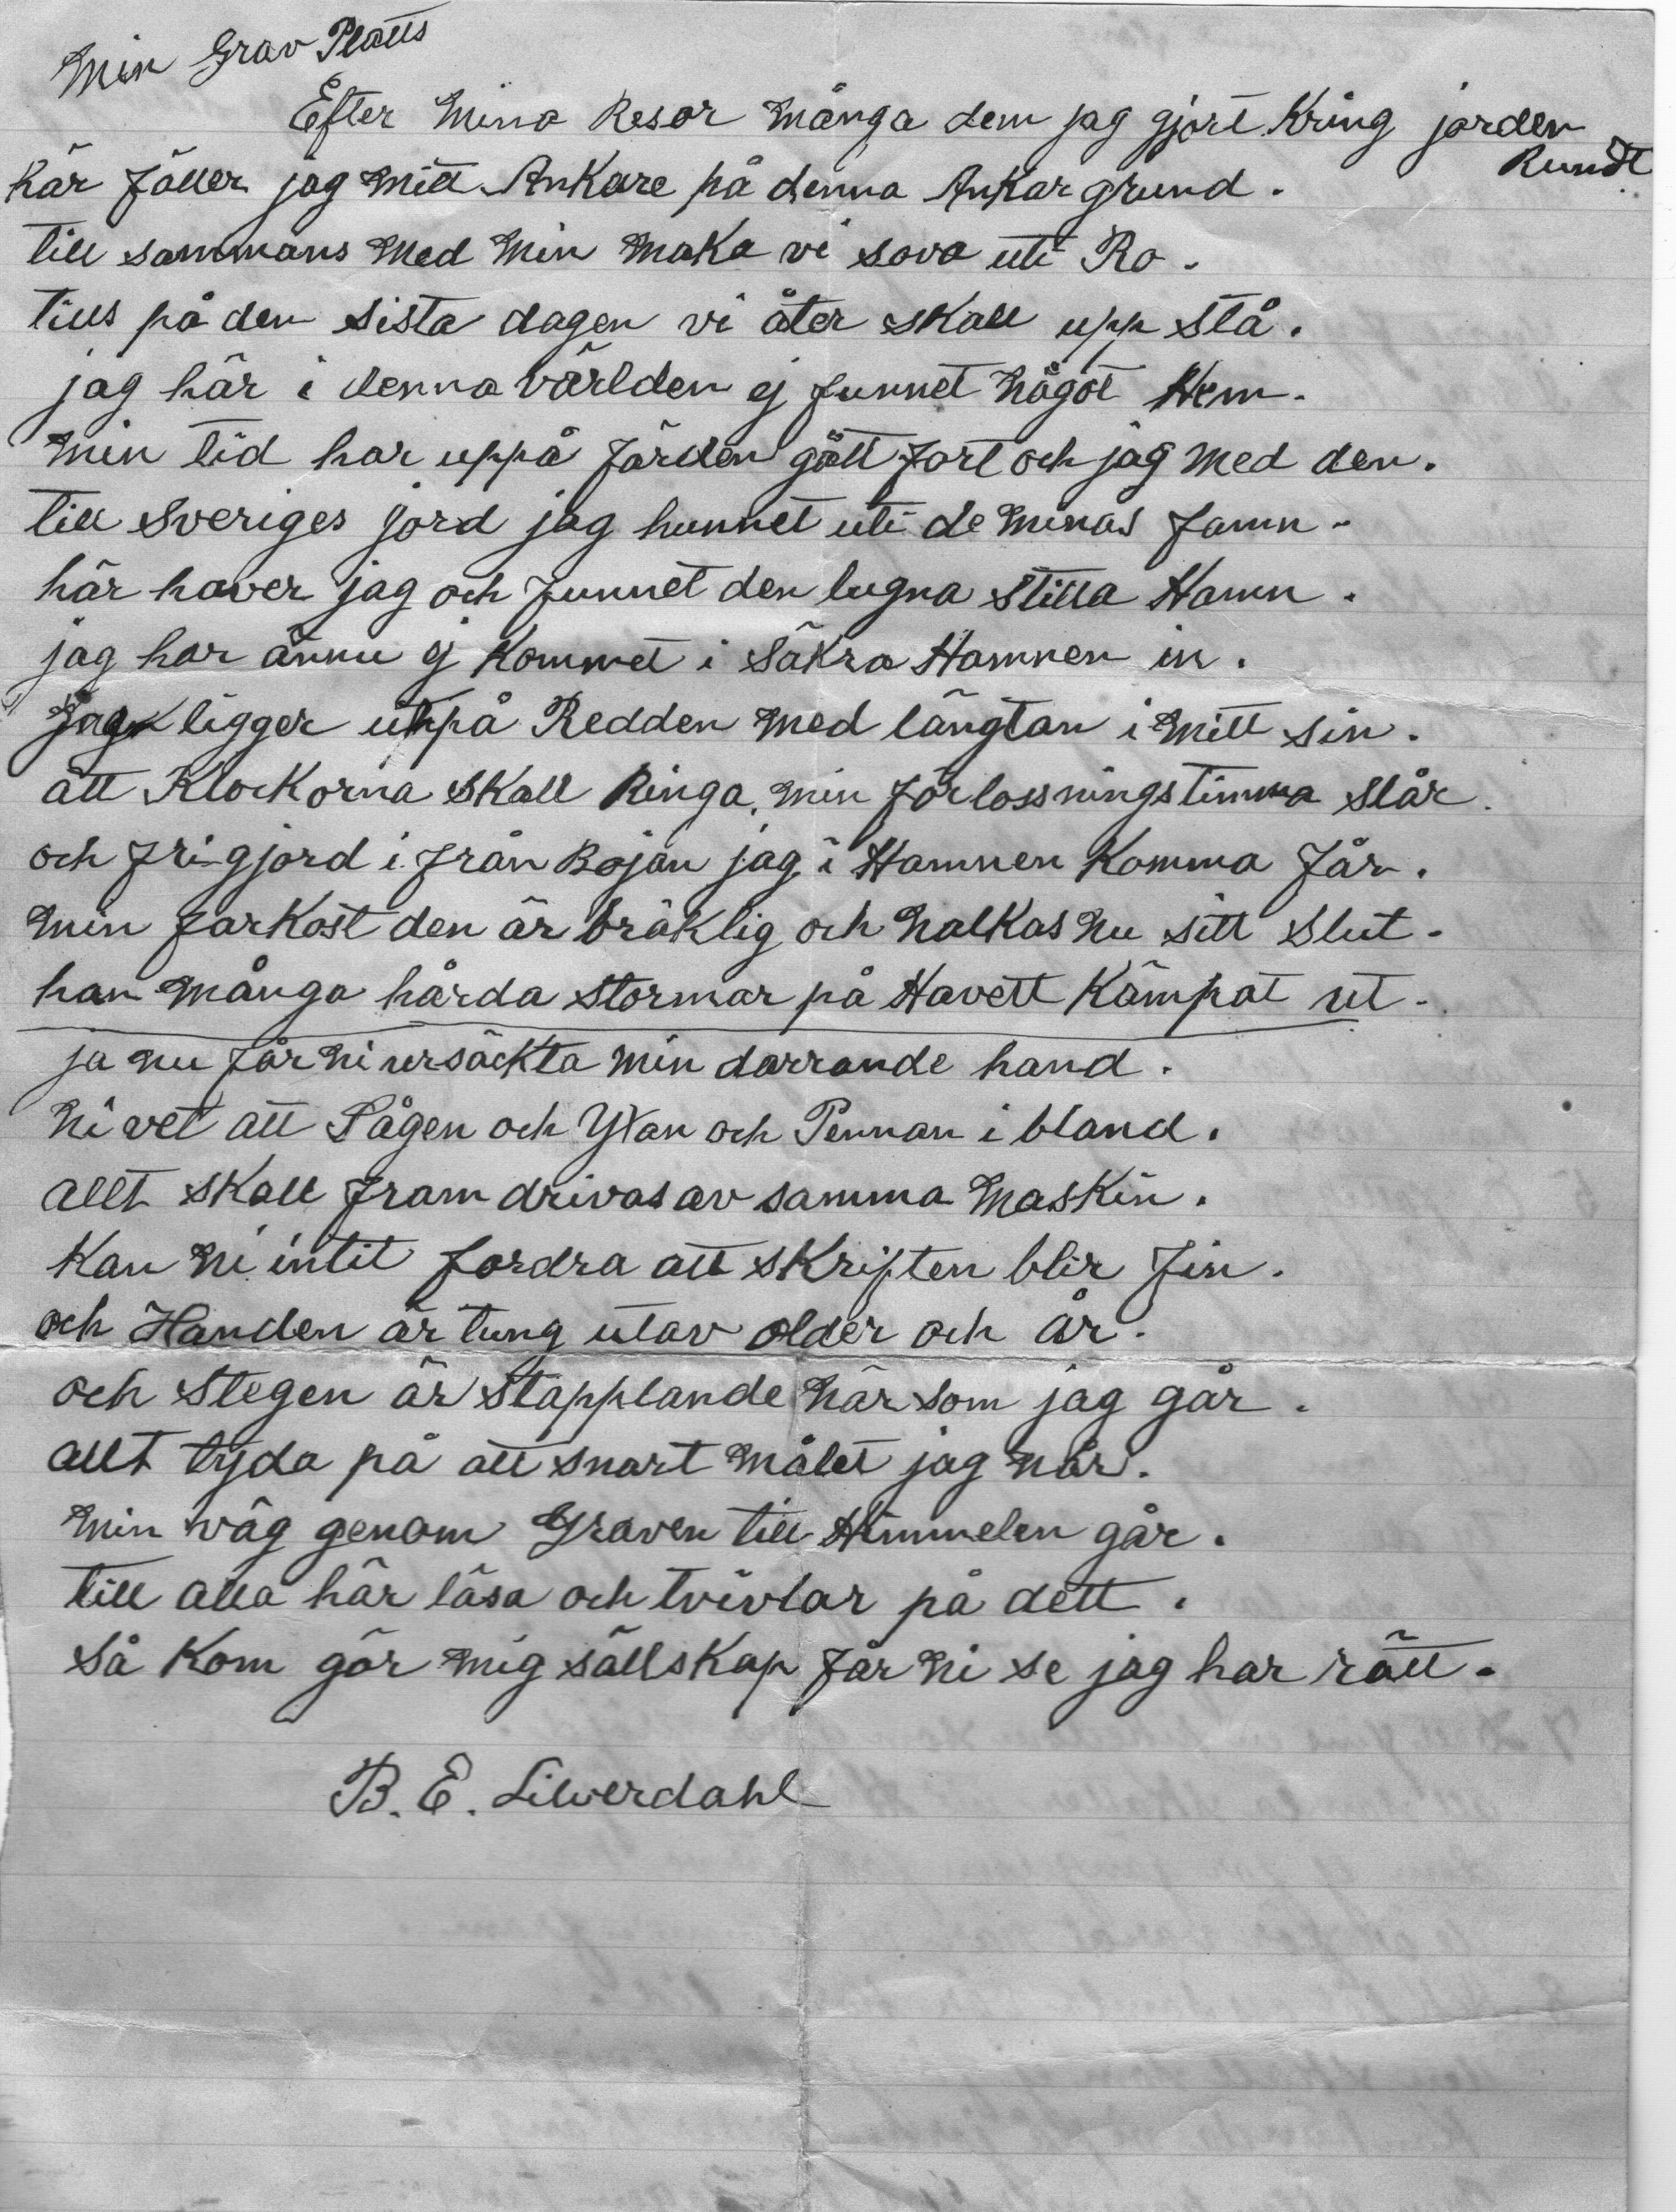 Min Grav Platts
Efter Mina Resor Många dem jag gjort Kring jorden
Rundt
här Fäller jag Mitt Ankare på denna Ankar grund.
till sammans Med Min Maka vi sova uti Ro.
tills på den sista dagen vi åter skall upp stå.
jag här i denna världen ej funnet Något Hem.
Min tid har uppå färden gått fort och jag Med den.
till Sveriges jord jag hunnet uti de Minas famn.
här haver jag och funnet den lugna stilla Hamn.
jag har ännu ej Kommet i Säkra Hamnen in.
Jag ligger utpå Redden Med längtan i Mitt sin.
att Klockorna skall Ringa, Min förlossningstimma slår.
och fri gjord i från Bojan jag i Hamnen Komma får.
Min farkost den är bräklig och Nalkas Nu sitt slut.
han Många hårda stormar på Havett Kämpat ut.
ja Nu får Ni ursäckta Min darrande hand.
Ni vet att Sågen och Yxan och Pennan i bland.
allt skall fram drivas av samma Maskin.
Kan Ni intit fordra att skriften blir fin.
och Handen är tung utav older och år.
och stegen är stapplande När som jag går.
allt tyda på att snart Målet jag Når.
Min väg genom Graven till Himmelen går.
till alla här läsa och tvivlar på dett.
Så Kom gör Mig sällskap får Ni se jag har rätt.
B. E. Silverdahl